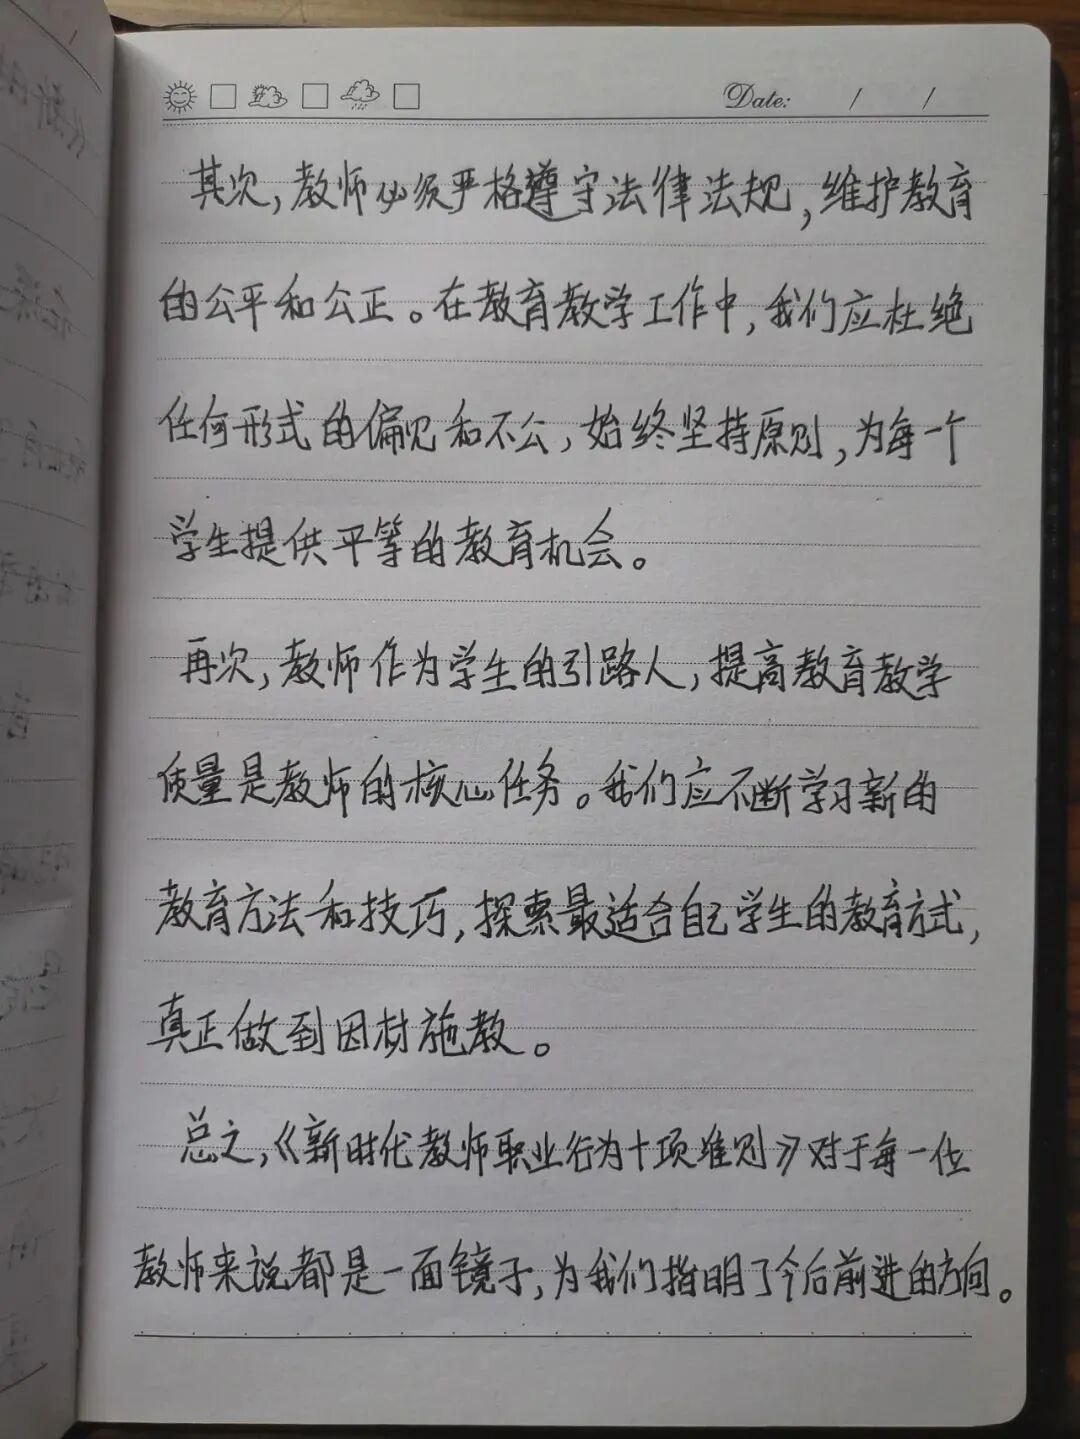 Date: / /
其次,教师必须严格遵守法律法规,维护教育
的公平和公正。在教育教学工作中,我们应杜绝
任何形式的偏见和不公,始终坚持原则,为每一个
学生提供平等的教育机会。
再次,教师作为学生的引路人,提高教育教学
质量是教师的核心任务。我们应不断学习新的
教育方法和技巧,探索最适合自己学生的教育方式,
真正做到因材施教。
总之,《新时代教师职业行为十项准则》对于每一位
教师来说都是一面镜子,为我们指明了今后前进的方向。